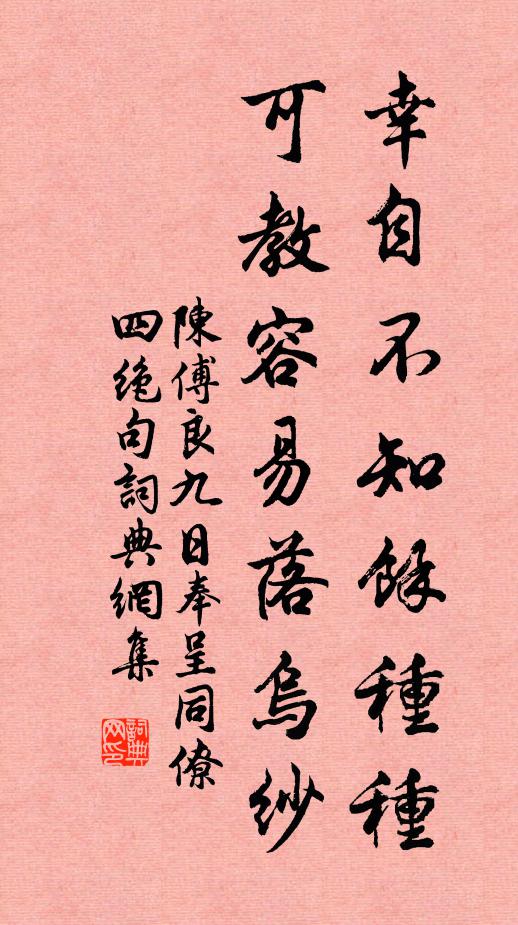 幸自不知餘種種
可教容易落烏紗
陳傅良九日奉呈同僚
四絶句詞典網集
詞典
网印